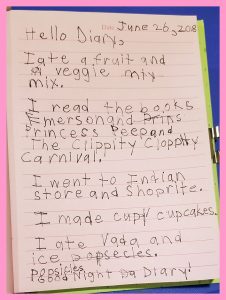 Date June 26, 2018
Hello Diary,
I ate a fruit and
veggie mix
mix.
I read the books
Emerson and Prins
Princess Peep and
The Clippity Clopptty
Carnival.
I went to Indian
store and Shoprite.
I made cupcakes.
I ate Vada and
ice popsecles.
popsicles
Good Night Da Diary!